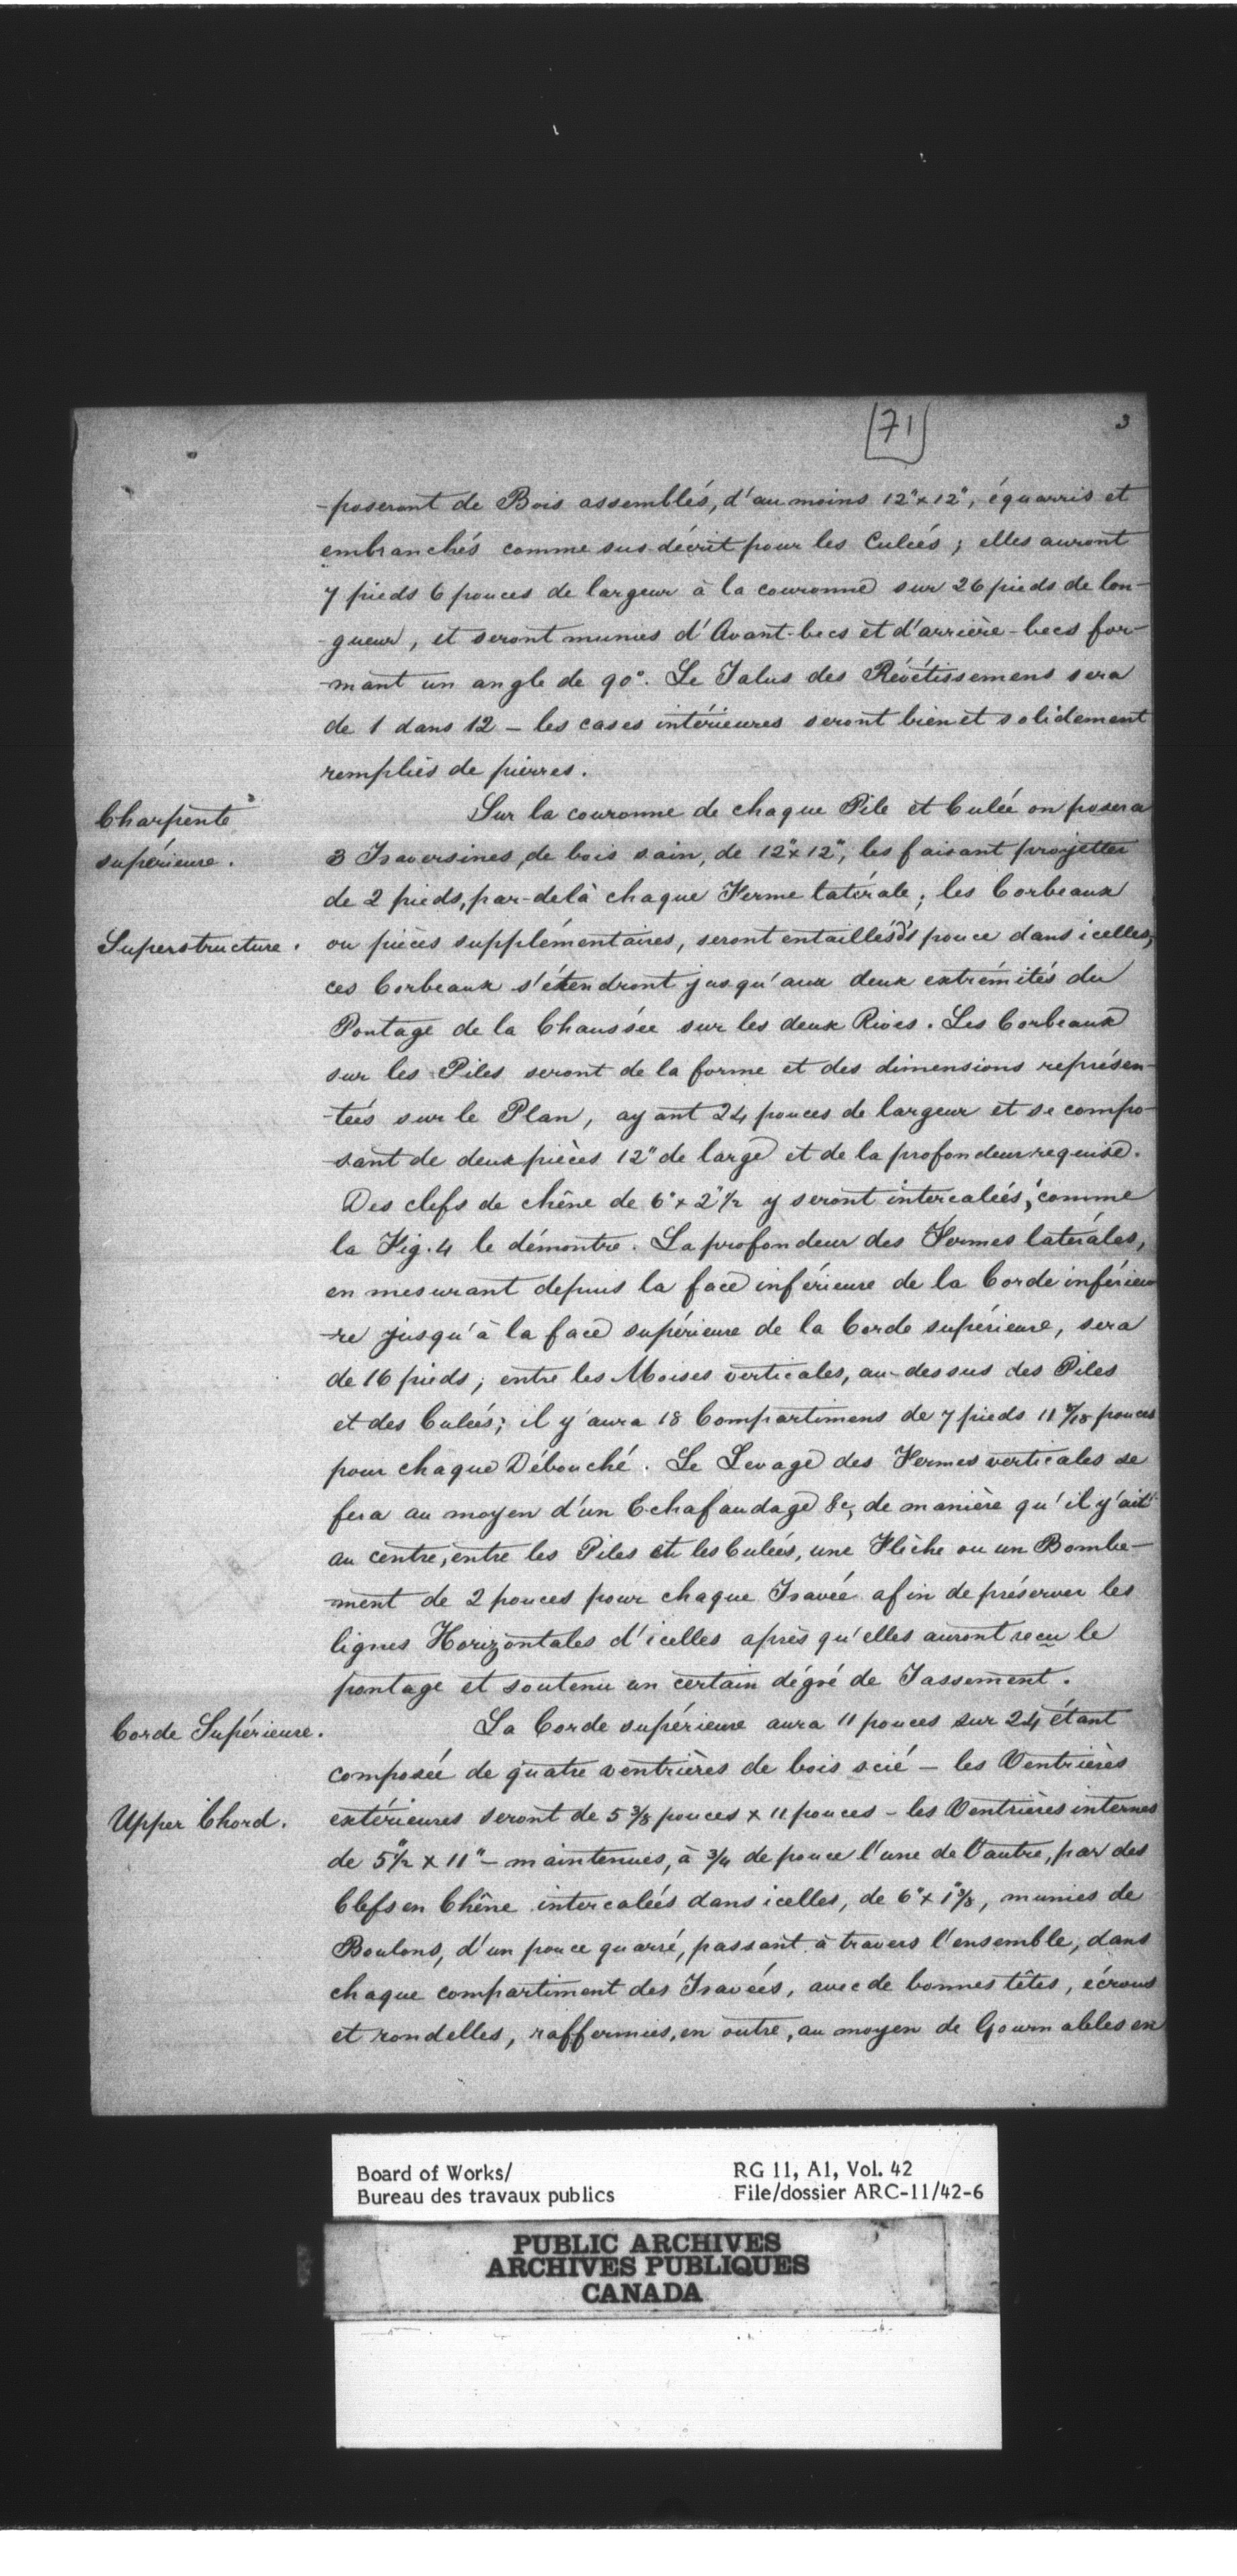 [71] 3
-poseront de Bois assemblés, d'au moins 12"x12", équarris et
embranchés comme sus-décrit pour les Culeés; elles auront
7 pieds 6 pouces de largeur à la couronne sur 26 pieds de lon-
-gueur, et seront munies d'Avant-becs et d'arrière-becs for-
-mant un angle de 90°. Le Talus des Révétissemens sera
de 1 dans 12 – les cases intérieures seront bien et solidement
remplies de pierres.
Charpente
supérieure.
Superstructure.
Sur la couronne de chaque Pile et Culée on posera
3 Traversines, de bois sain, de 12"x12", les faisant projetter
de 2 pieds, par-delà chaque Ferme latérale; les Corbeaux
ou pièces supplémentaires, seront entaillés pouce dans icelles;
ces Corbeaux s'étendront jusqu'aux deux extrémités du
Pontage de la Chaussée sur les deux Rives. Les Corbeaux
sur les Piles seront de la forme et des dimensions représen-
-teés sur le Plan, ayant 24 pouces de largeur et se compo-
-sant de deux pièces 12" de large et de la profondeur requise.
Des clefs de chêne de 6"x2"½ y seront intercaleés, comme
la Fig. 4 le démontre. La profondeur des Fermes latérales,
en mesurant depuis la face inférieure de la Corde inférieu
-re jusqu'à la face supérieure de la Corde supérieure, sera
de 16 pieds; entre les Moises verticales, au-dessus des Piles
et des Culeés; il y'aura 18 Compartimens de 7 pieds 11 pouces
pour chaque Débouché. Le Levage des Fermes verticales se
fera au moyen d'un Echafaudage &c, de manière qu'il y'ait
au centre, entre les Piles et les Culeés, une Flèche ou un Bombe-
-ment de 2 pouces pour chaque Traveé afin de préserver les
lignes Horizontales d'icelles après qu'elles auront reçu le
pontage et soutenu un certain dégré de Tassement.
Corde Supérieure.
Upper Chord.
La Corde supérieure aura 11 pouces sur 24 étant
composée de quatre ventrières de bois scié – les Ventrières
extérieures seront de 5 3/8 pouces x 11 pouces – les Ventrières internes
de 5"½ x 11" – maintenues, à ¾ de pouce l'une de l'autre, par des
Clefs en Chêne intercaleés dans icelles, de 6"x1"3/8, munies de
Boulons, d'un pouce quarré, passant à travers l'ensemble, dans
chaque compartiment des Traveés, avec de bonnes têtes, écrous
et rondelles, raffermies, en outre, au moyen de Gournables en
Board of Works/
Bureau des travaux publics
RG 11, A1, Vol. 42
File/dossier ARC-11/42-6
PUBLIC ARCHIVES
ARCHIVES PUBLIQUES
CANADA